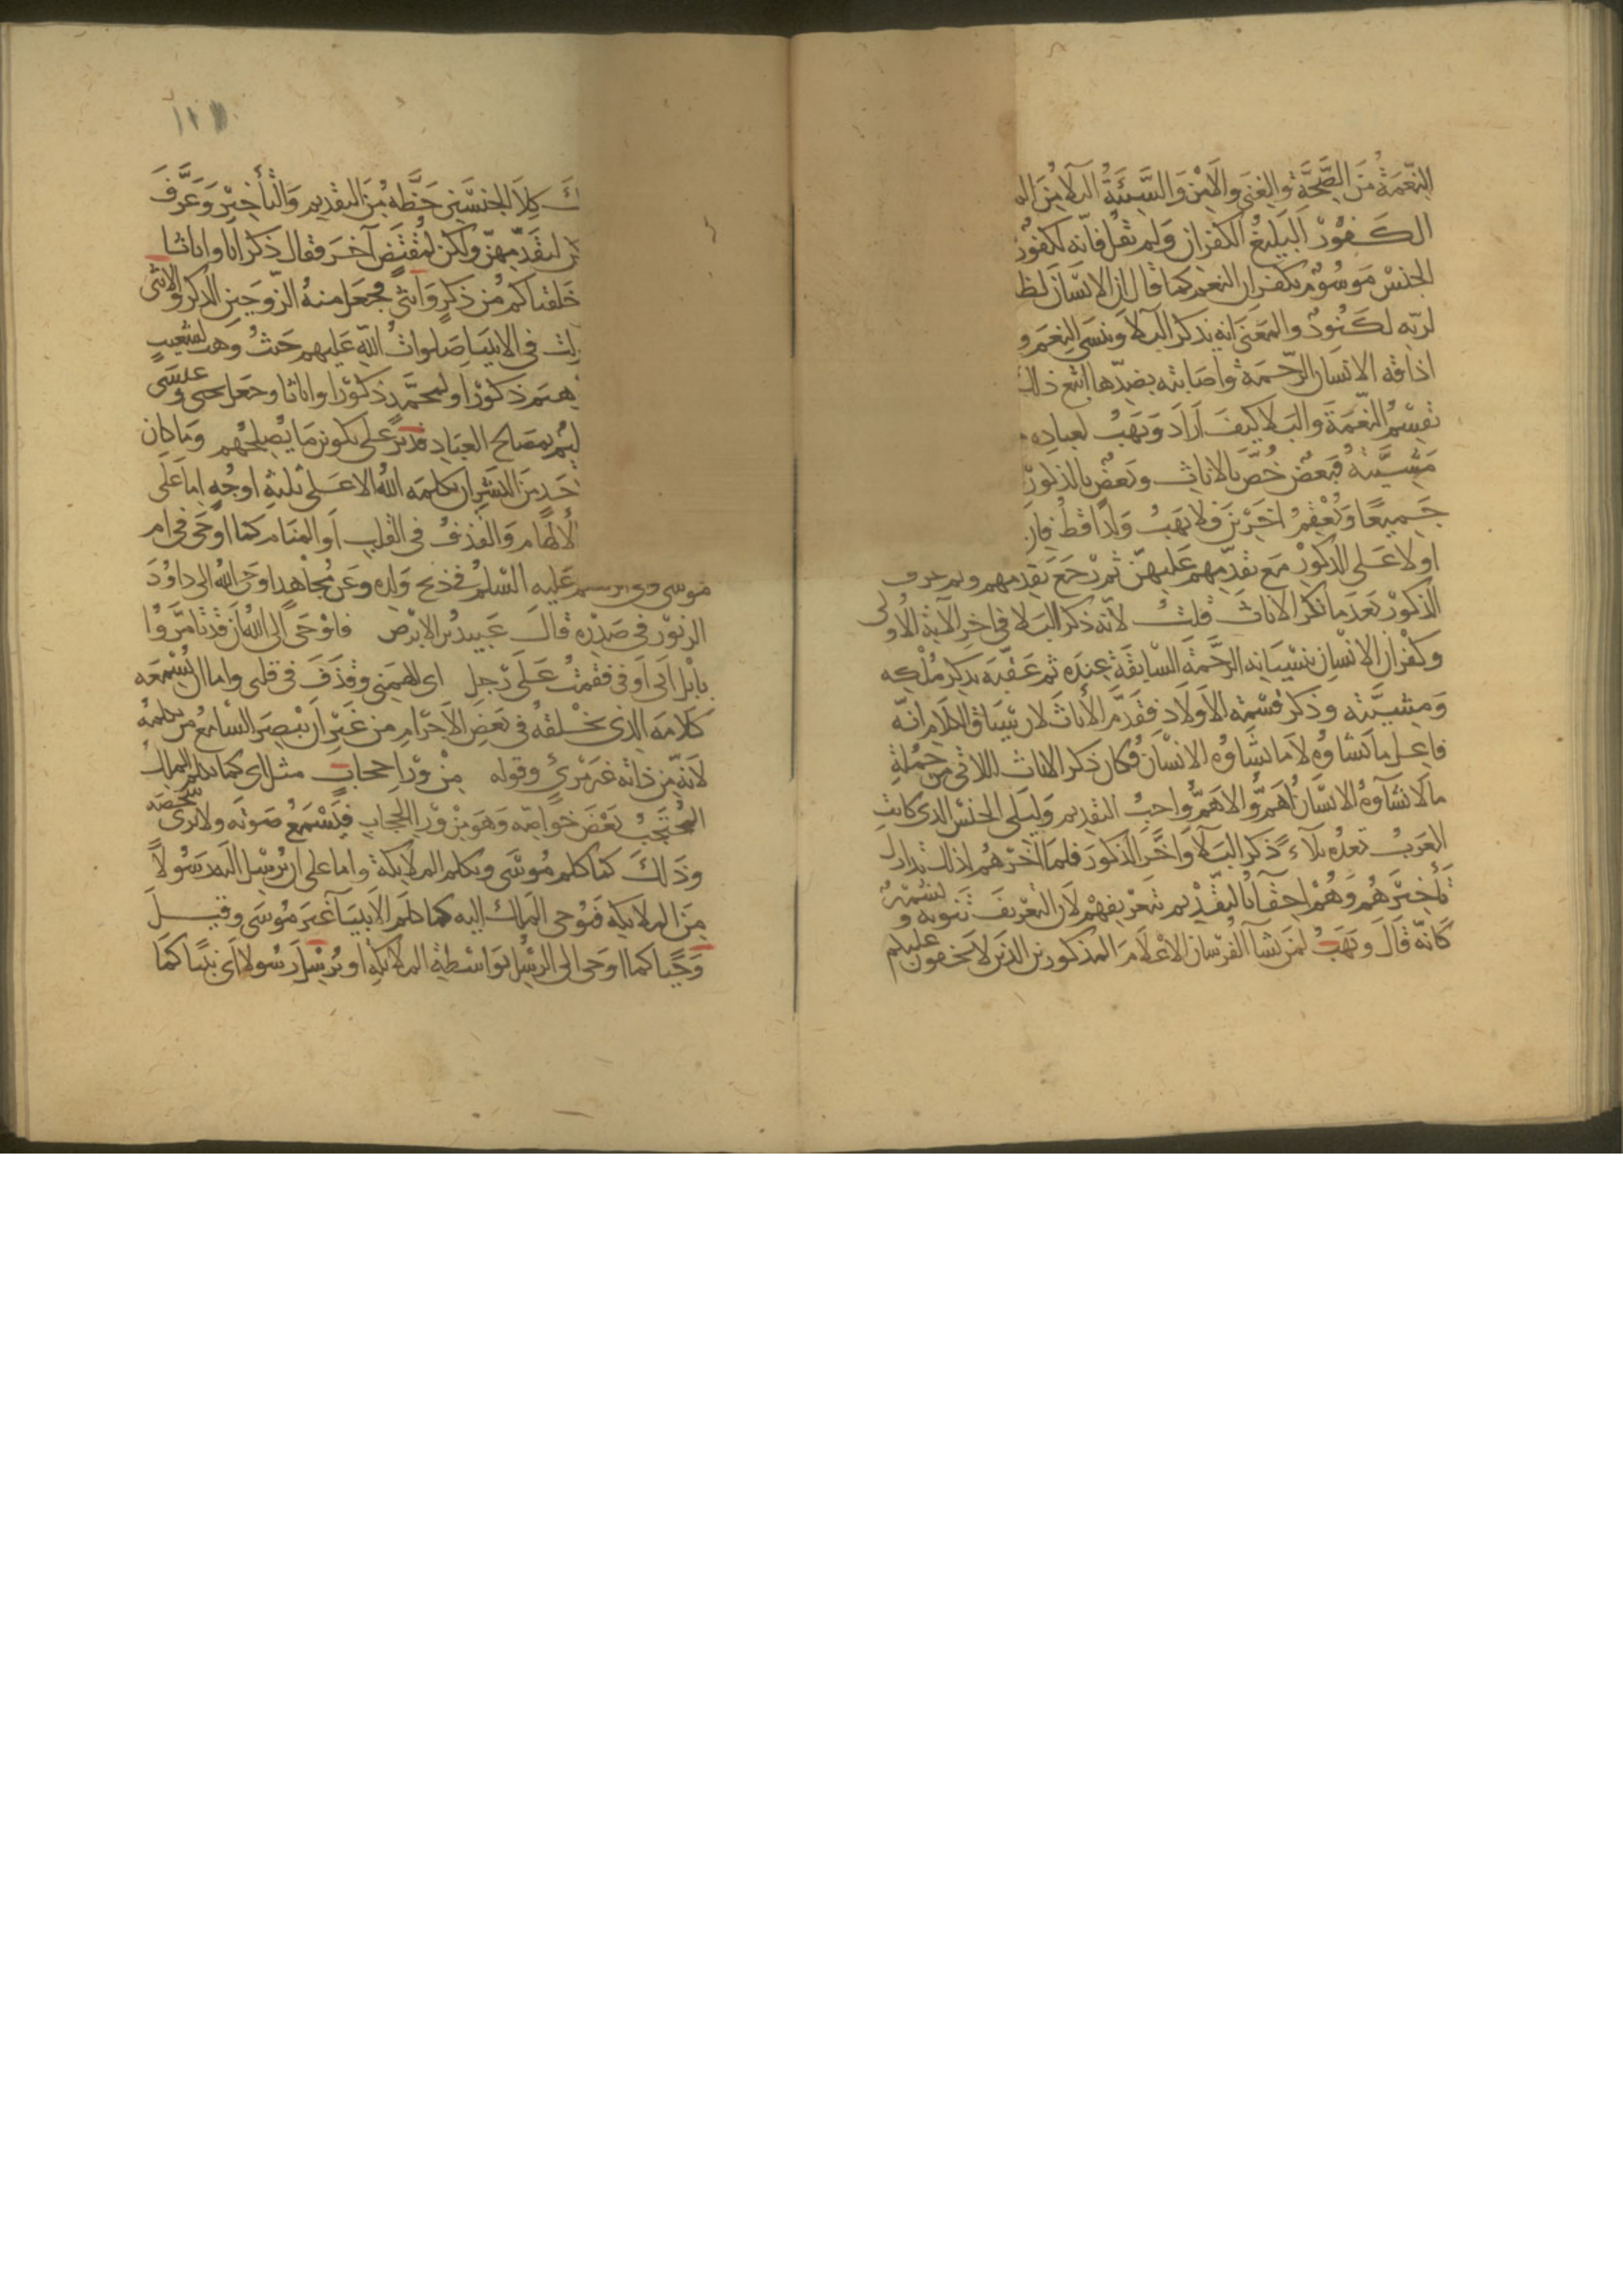 النِّعْمَةُ مِنَ الصِّحَّةِ والغِنَى والامْنِ وَالسَّيِّئَةُ البلاءُ مِنَ
الكَفُورُ البَلِيغُ الكفرانِ وَلم يَقُلْ فانّه لكفورٌ
الجنس مَوسُومٌ بكفران النعم كما قال ان الانسان لظ
لربّه لكنُودٌ والمَعنَى انه يذكر البَلاءَ وينسَى النِعَم و
اذاقه الانسان الرَّحمةَ واصابته بضدّها اتبع ذلك
تقسِمُ النِّعْمَةَ والبَلاء كيفَ ارَادَ وَيَهَبُ لعبادِه
مَشِيَّتهُ فبَعضٌ خُصَّ بالاناثِ وبَعضٌ بالذكُورِ
جَمِيعًا ويُعْقِمُ اخَرِينَ فلا يَهَبُ وَلدًا قطُّ فان
اولا عَلى الذكورِ مع تقدّمِهم عَلَيهنّ ثم رَجَعَ بَقدمهم ولم عرف
الذكورَ بَعدَ ما نكر الاناثَ قلتُ لأنه ذكر البَلاءَ في اخِر الآيةِ الأولى
وكفران الانسانِ بنسيانِه الرَّحمَةَ السّابقَةَ عِندَه ثم عَقّبَه بذكر مُلْكِه
ومشيَّته وذكر قسْمَة الأولادِ فقَدّمَ الأناثَ لان سِيَاقَ الكلام انّه
فاعِل ما يَشاؤُه لا ما يَشَاؤُه الانسَانُ فكان ذكر الاناث اللاتى من جُملةِ
ما لا يَشَاوُهُ الانسَانُ اهَمّ والاهَمُّ واجبُ التقديم وَليَلَى الجنسُ الذي كانتِ
العَربُ تعدّه بَلاءً ذكر البَلاءِ وَاخَّرَ الذكورَ فلما اخّرهُم لذلك تدارك
تأخيرَهُم وَهُمْ احِقّاءُ بالتقديم بتعريفِهِم لان التعريفَ تنويه و تشهير
كأنّه قال ويَهَبُ لمن يَشَاءُ الفُرسان الأعلامَ المذكورين الذين لا يَخفون عليكم
كلا الجنسَينِ حَظّه مِنَ التقديم والتأخير وعَرَّفَ
لتقدّمهنّ ولكن لمُقتَضٍ آخَرَ فقال ذكرانا واناثا
خَلقناكم من ذكرٍ وَانثى فجعل منهُ الزّوجَين الذكر والانثى
لت في الانبيا صَلوات اللّه عَليهم حَيثُ وهب لشعيب
هيم ذكورًا ولمحمَّدٍ ذكورًا واناثا وجعل يحيى وعيسَى
ليم بمصالح العباد قدير على تكوين مَا يُصلحُهم وَما كان
حَدٍ مِنَ البشر ان يكلمه الله الا على ثلثةِ اوجُهٍ اما عَلى
لألهَام وَالقذفُ في القلبِ أو المنَام كما اوحَى في ام
مُوسى وإلى ابرهيم عَليه السّلمُ في ذبح وَلدِه وعَن مُجاهدٍ اوحَى اللهُ الى داوُدَ
الزبُورَ في صَدرِه قالَ عَبيدُ بن الابرَص فاوْحَى الىَّ اللهُ أَن قد تأمَّرُوا
بإبل ابى أوفى فقمتُ عَلى رِجلِ اى الهمَنى وقذَفَ في قلبى واما ان يُسْمِعَه
كلامَه الذى يَخْلقهُ في بَعضِ الأجرامِ من غيرِ أن يُبصِرَ السّامِعُ مَن يكلمُه
لأنّه من ذاته غير مَرئىٍ وقوله مِنْ ورَاءِ حجابٍ مثل اى كما يكلم الملك
المُحتجِبُ بَعْضَ خوَاصّه وَهُوَ مِنْ ورَاءِ الحِجاب فيَسْمَعُ صَوتَه ولا يرى شخصه
وذَلكَ كما كلم مُوسَى ويكلم الملايكة واما على ان يُرسِلَ اليه رسُولاً
مِنَ الملايكة فيُوحى المَلك اليه كما كلّم الأنبيَاءَ غيرَ مُوسَى وقيل
وَحْيا كما اوحَى الى الرسُل بوَاسِطة الملائكةِ او يُرْسِلَ رَسُولا أى نبيّا كمَا